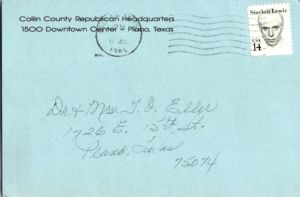 Collin County Republican Headquarters
1500 Downtown Center - Plano, Texas
PM
1985
Sinclair Lewis
USA
14
Dr. & Mrs. T. D. Eller
1726 E. 15th St.
Plano, Texas
75074